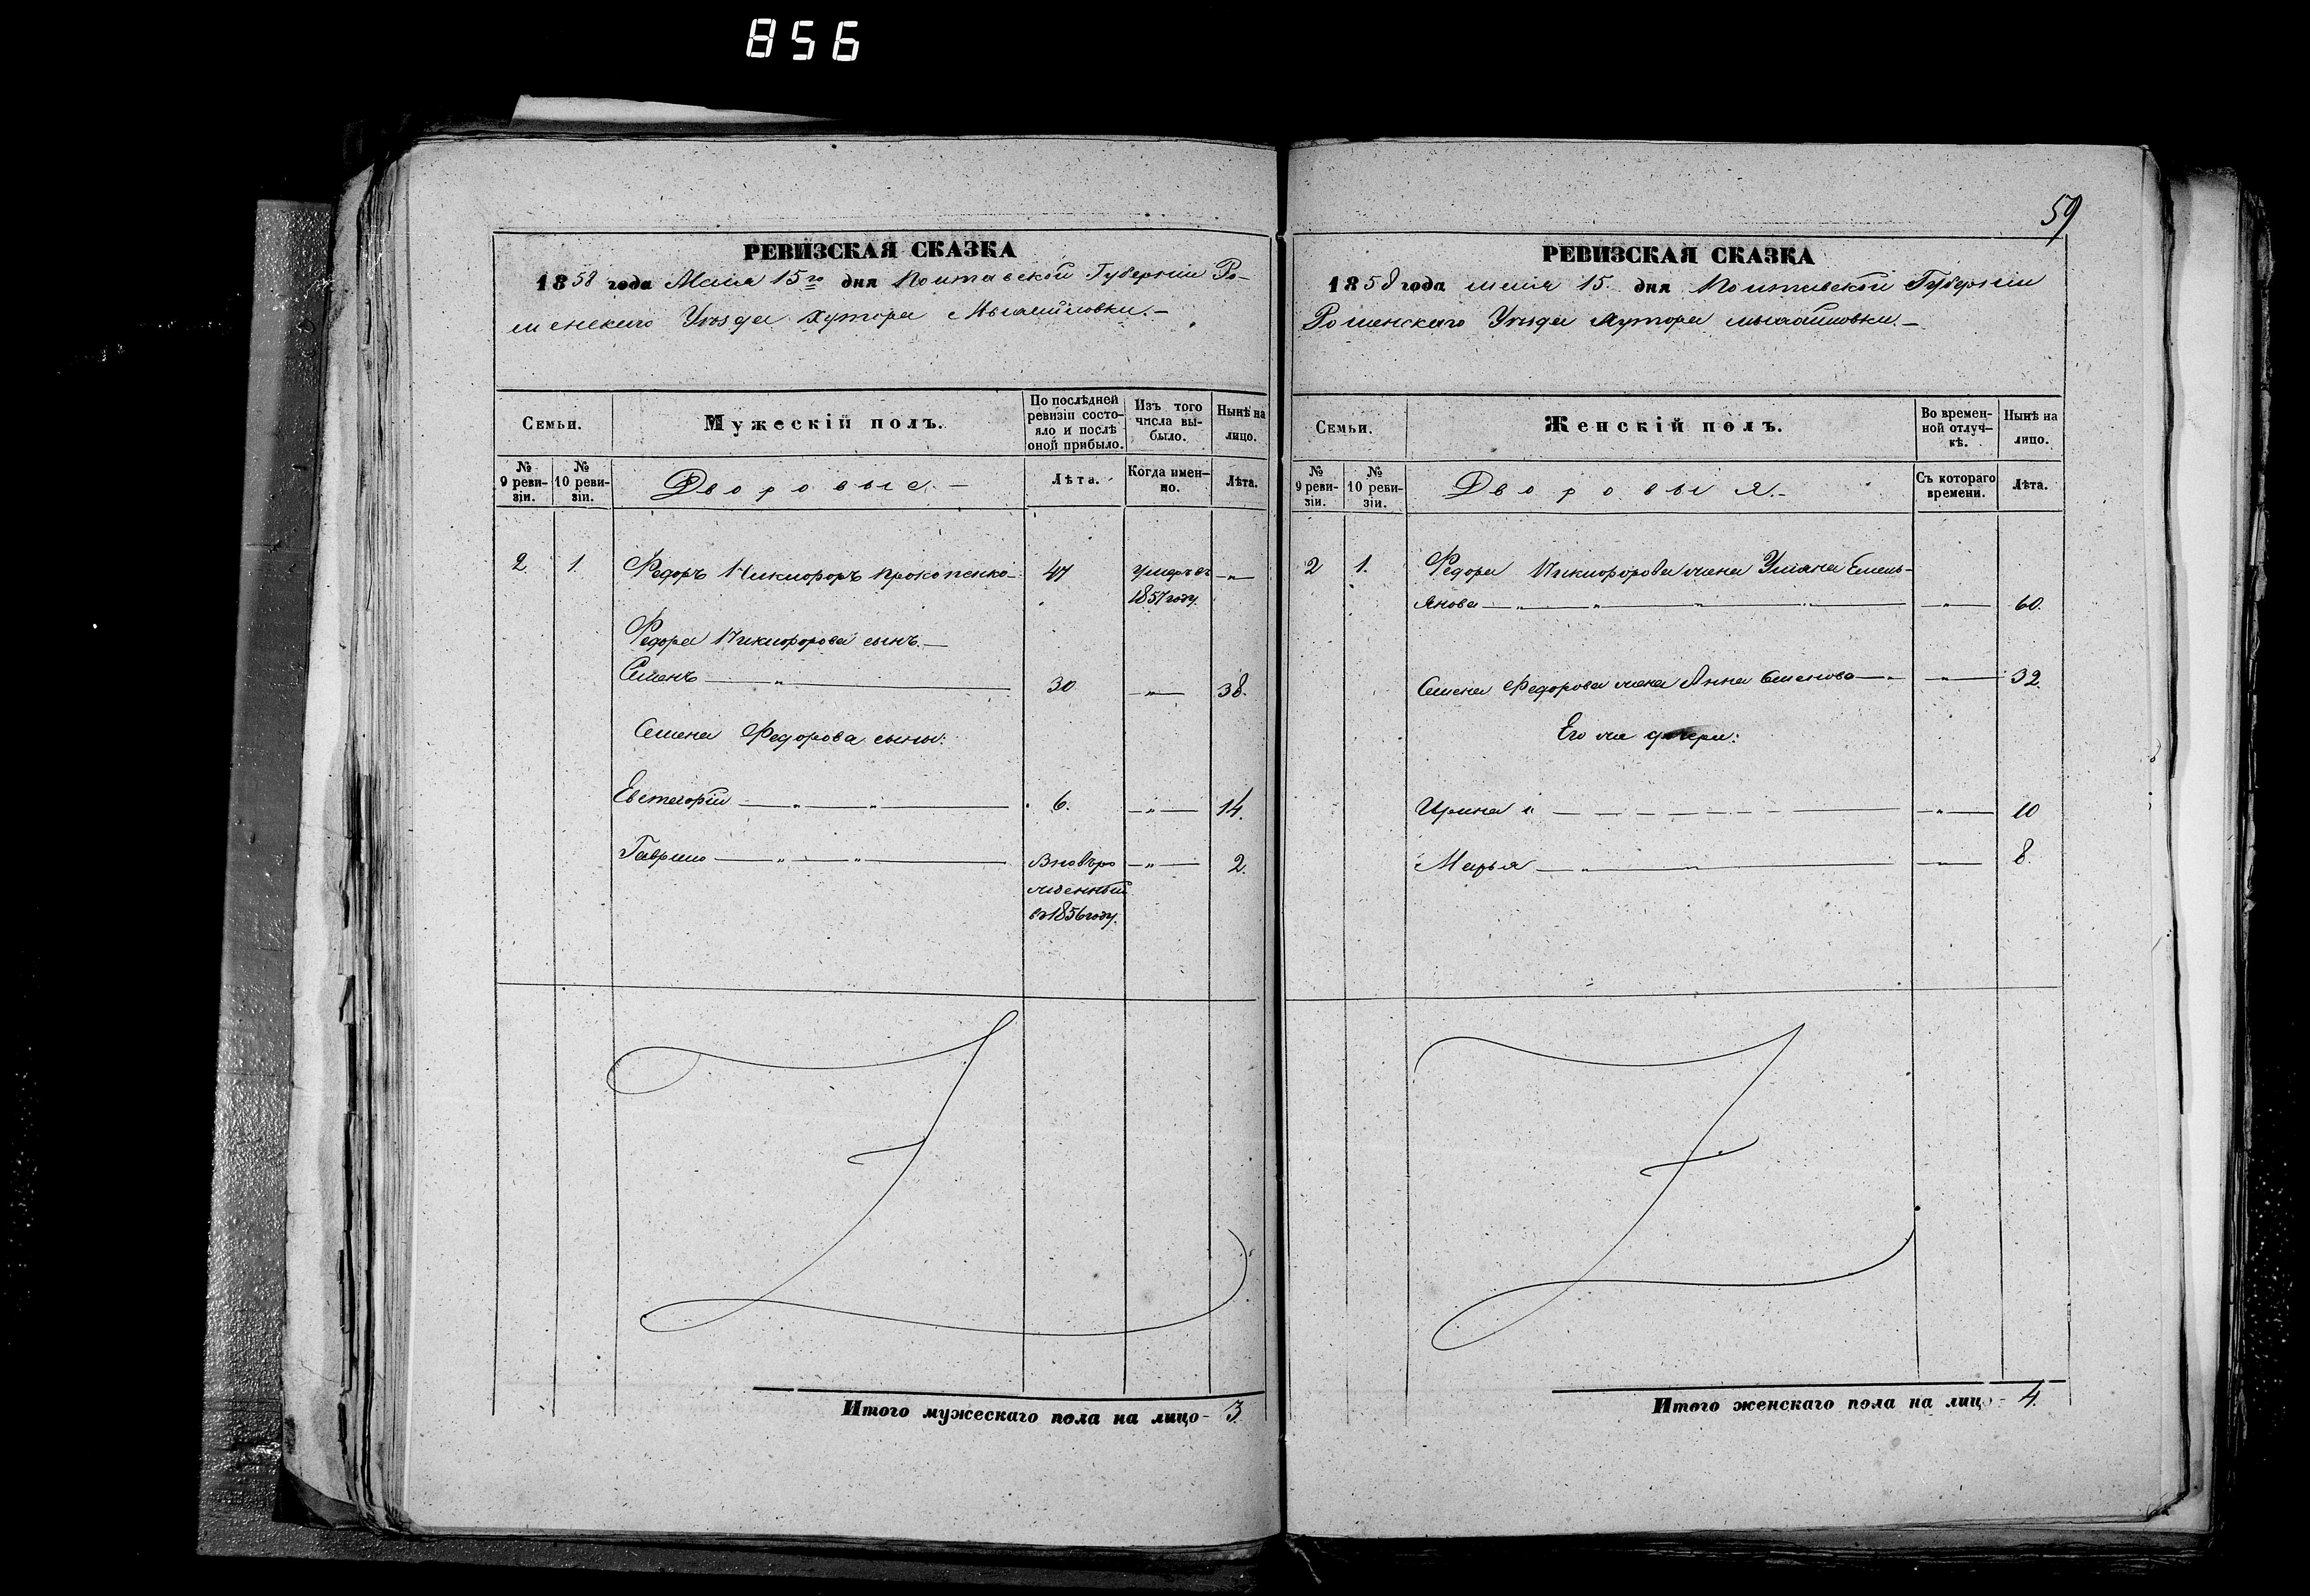 856
59
РЕВИЗСКАЯ СКАЗКА
1858 года Маія 15го дня Полтавской Губерніи Ро-
менскаго Уѣзда хутора
Семьи.
Мужескій полъ.
По послѣдней ревизіи состояло и послѣ оной прибыло.
Изъ того числа выбыло.
Нынѣ на лицо.
№ 9 ревизіи.
№ 10 ревизіи.
Дворовые.
Лѣта.
Когда именно.
Лѣта.
2. 1. Федоръ Никифоръ Прокопенко 47 умеръ въ
1857 году.
Федора Никифорова сынъ.
Семенъ 30 38.
Семена Федорова сыны:
Евстегорій 6. 14.
Гаврило Вновьро 2.
жденный
въ 1856 году.
Итого мужескаго пола на лицо - 3
РЕВИЗСКАЯ СКАЗКА
1858 года маія 15. дня Полтавской Губерніи
Роменскаго Уѣзда Хутора
Семьи.
Женскій полъ.
Во временной отлучкѣ.
Нынѣ на лицо.
№ 9 ревизіи.
№ 10 ревизіи.
Дворовыя.
Съ котораго времени.
Лѣта.
2 1. Федора Никифорова жена Уліяна Емель-
янова 60.
Семена Федорова жена Анна Семенова 32.
Его же дочери:
Ирина 10
Марья 8.
Итого женскаго пола на лицо - 4.